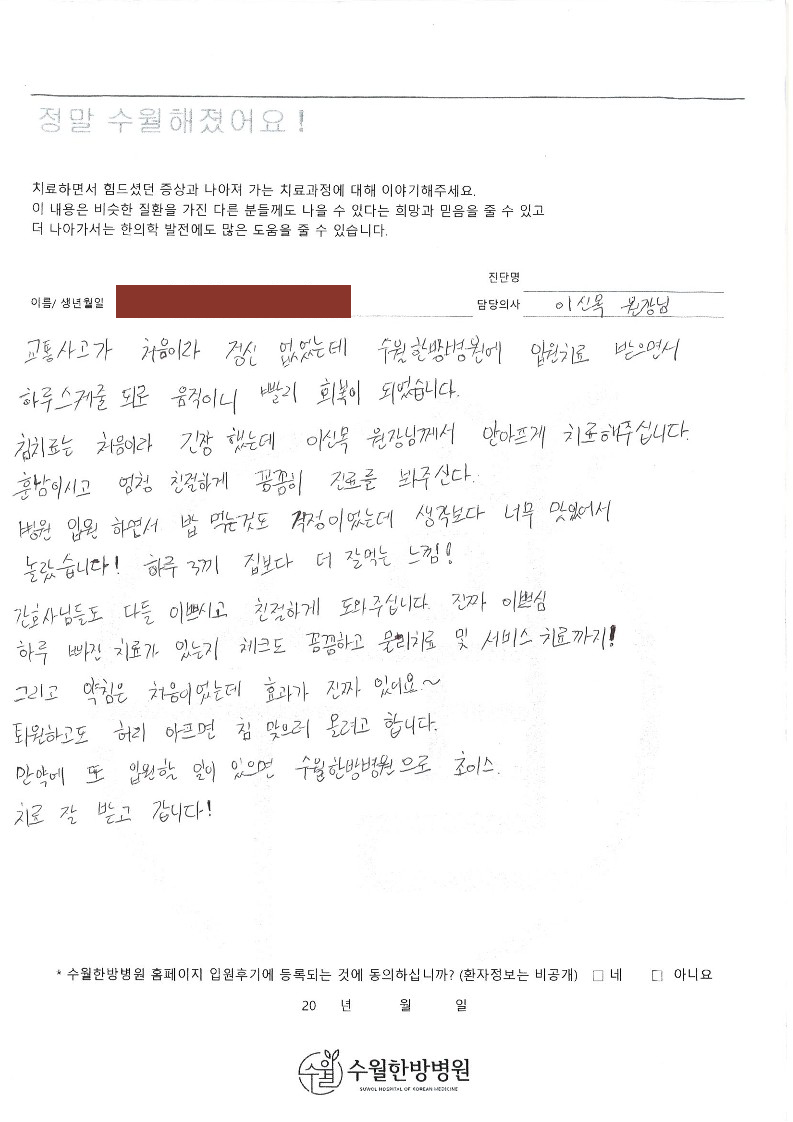 정말 수월해졌어요!
치료하면서 힘드셨던 증상과 나아져 가는 치료과정에 대해 이야기해주세요.
이 내용은 비슷한 질환을 가진 다른 분들께도 나을 수 있다는 희망과 믿음을 줄 수 있고
더 나아가서는 한의학 발전에도 많은 도움을 줄 수 있습니다.
진단명
이름/ 생년월일 담당의사 이신목 원장님
교통사고가 처음이라 정신 없었는데 수월한방병원에 입원치료 받으면서
하루스케줄 되로 움직이니 빨리 회복이 되었습니다.
침치료는 처음이라 긴장 했는데 이신목 원장님께서 안아프게 치료해주십니다.
훈남이시고 엄청 친절하게 꼼꼼히 진료를 봐주신다.
병원 입원 하면서 밥 먹는것도 걱정이었는데 생각보다 너무 맛있어서
놀랐습니다! 하루 3끼 집보다 더 잘먹는 느낌!
간호사님들도 다들 이쁘시고 친절하게 도와주십니다. 진짜 이쁘심
하루 빠진 치료가 있는지 체크도 꼼꼼하고 물리치료 및 서비스 치료까지!
그리고 약침은 처음이었는데 효과가 진짜 있어요~
퇴원하고도 허리 아프면 침 맞으러 올려고 합니다.
만약에 또 입원할 일이 있으면 수월한방병원으로 초이스.
치료 잘 받고 갑니다!
* 수월한방병원 홈페이지 입원후기에 등록되는 것에 동의하십니까? (환자정보는 비공개) □ 네 □ 아니요
20 년 월 일
수월 수월한방병원
SUWOL HOSPITAL OF KOREAN MEDICINE